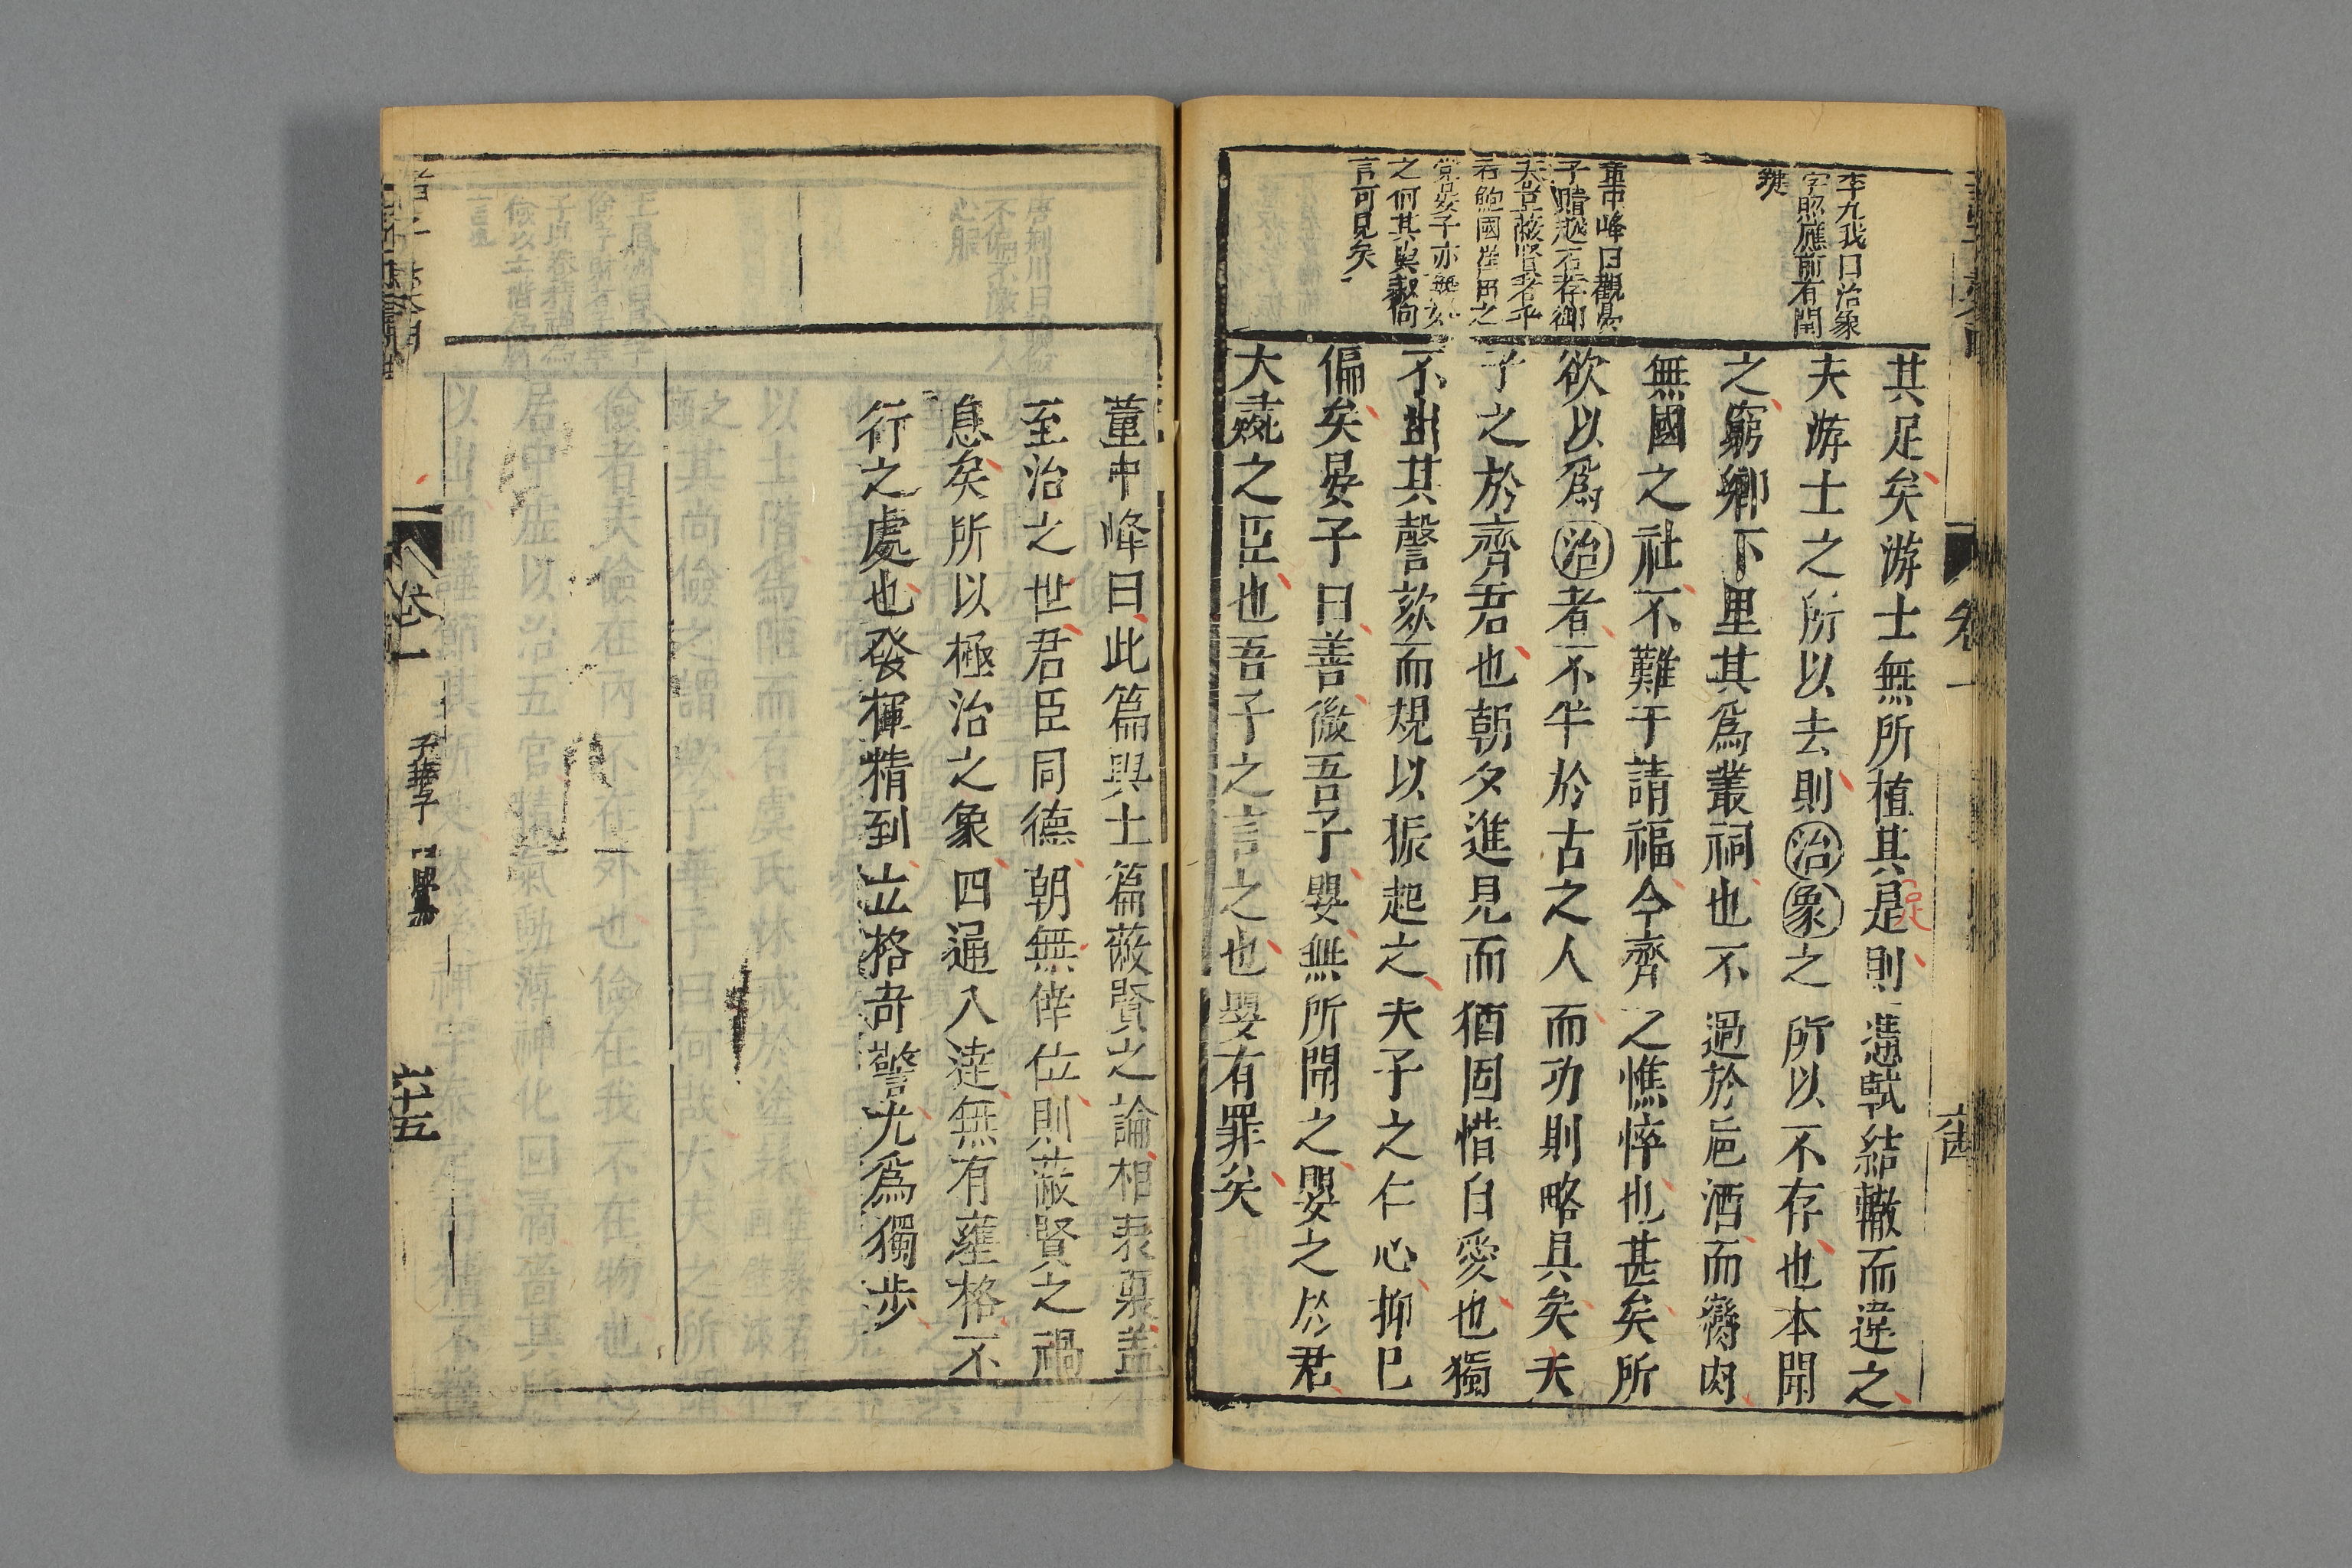 李九我曰治象
字照應前有開
鍵
董中峰曰觀晏
子贖越石荐御
夫豈蔽賢者乎
若鮑國崔田之
黨晏子亦無如
之何其與叔向
言可見矣
其足矣游士無所植其足則憑軾結轍而違之
夫游士之所以去則治象之所以不存也本開
之窮鄉下里其爲叢祠也不過於巵酒而臠肉
無國之社不難于請福今齊之憔悴也甚矣所
欲以爲治者不牟於古之人而功則略具矣夫
子之於齊君也朝夕進見而猶固惜自愛也獨
不出其謦欬而規以振起之夫子之仁心抑巳
偏矣晏子曰善微吾子嬰無所聞之嬰之於君
大痝之臣也吾子之言之也嬰有罪矣
卷一
董中峰曰此篇與士篇蔽賢之論相表裏盖
至治之世君臣同德朝無倖位則蔽賢之禍
息矣所以極治之象四通八達無有壅格不
行之處也發揮精到立格奇警尤爲獨步
卷一
子華子
六十五